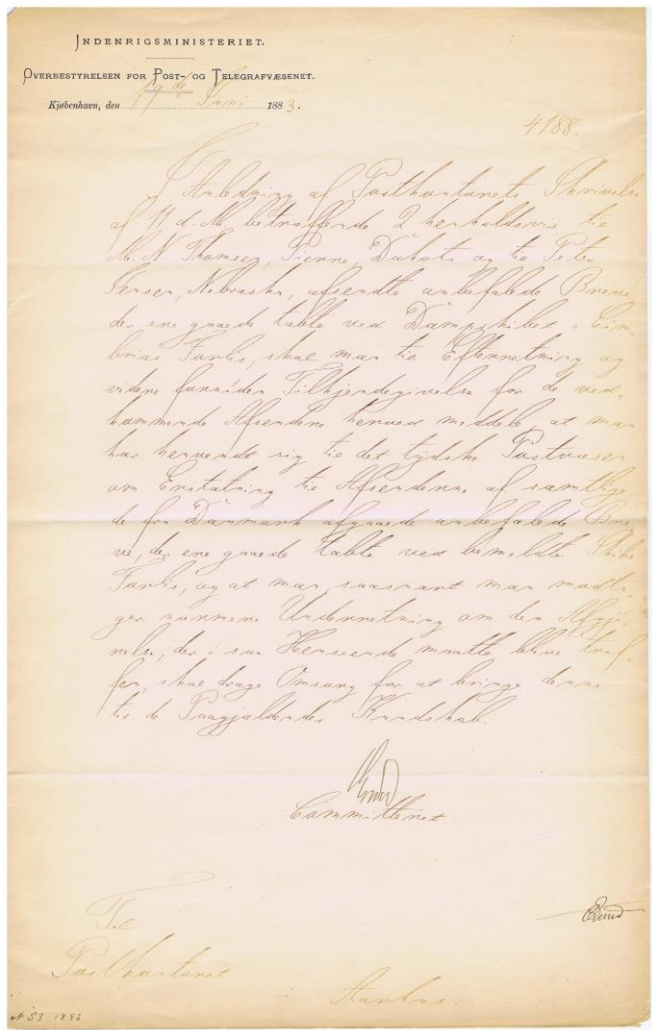 INDENRIGSMINISTERIET.
OVERBESTYRELSEN FOR POST- OG TELEGRAFVÆSENET.
Kjøbenhavn, den 19de Juni 1883.
4188.
I Anledning af Postkontorets Skrivelse
af 11 d. M. betræffende 2 henholdsvis til
N. Thomsen, Pierre, Dakota og til Peter
Jensen, Nebraska, afsendte anbefalede Breve
der ere gaaede tabte ved Dampskibet "Cim-
brias" Forlis, skal man til Efterretning og
videre fornøden Tilkjendegivelse for de ved-
kommende Afsendere herved meddele, at man
har henvendt sig til det tydske Postvæsen
om Erstatning til Afsenderne af samtlige
de fra Danmark afgaaede anbefalede Bre-
ve, der ere gaaede tabte ved bemeldte Skibs
Forlis, og at man, saasnart man modta-
ger nærmere Underretning om den Afgjø-
relse, der i saa Henseende maatte blive truf-
fen, skal drage Omsorg for at bringe denne
til de Paagjældendes Kundskab.
Lund
Committeret.
Lund
Til
Postkontoret
i Aarhus.
N 53 1883